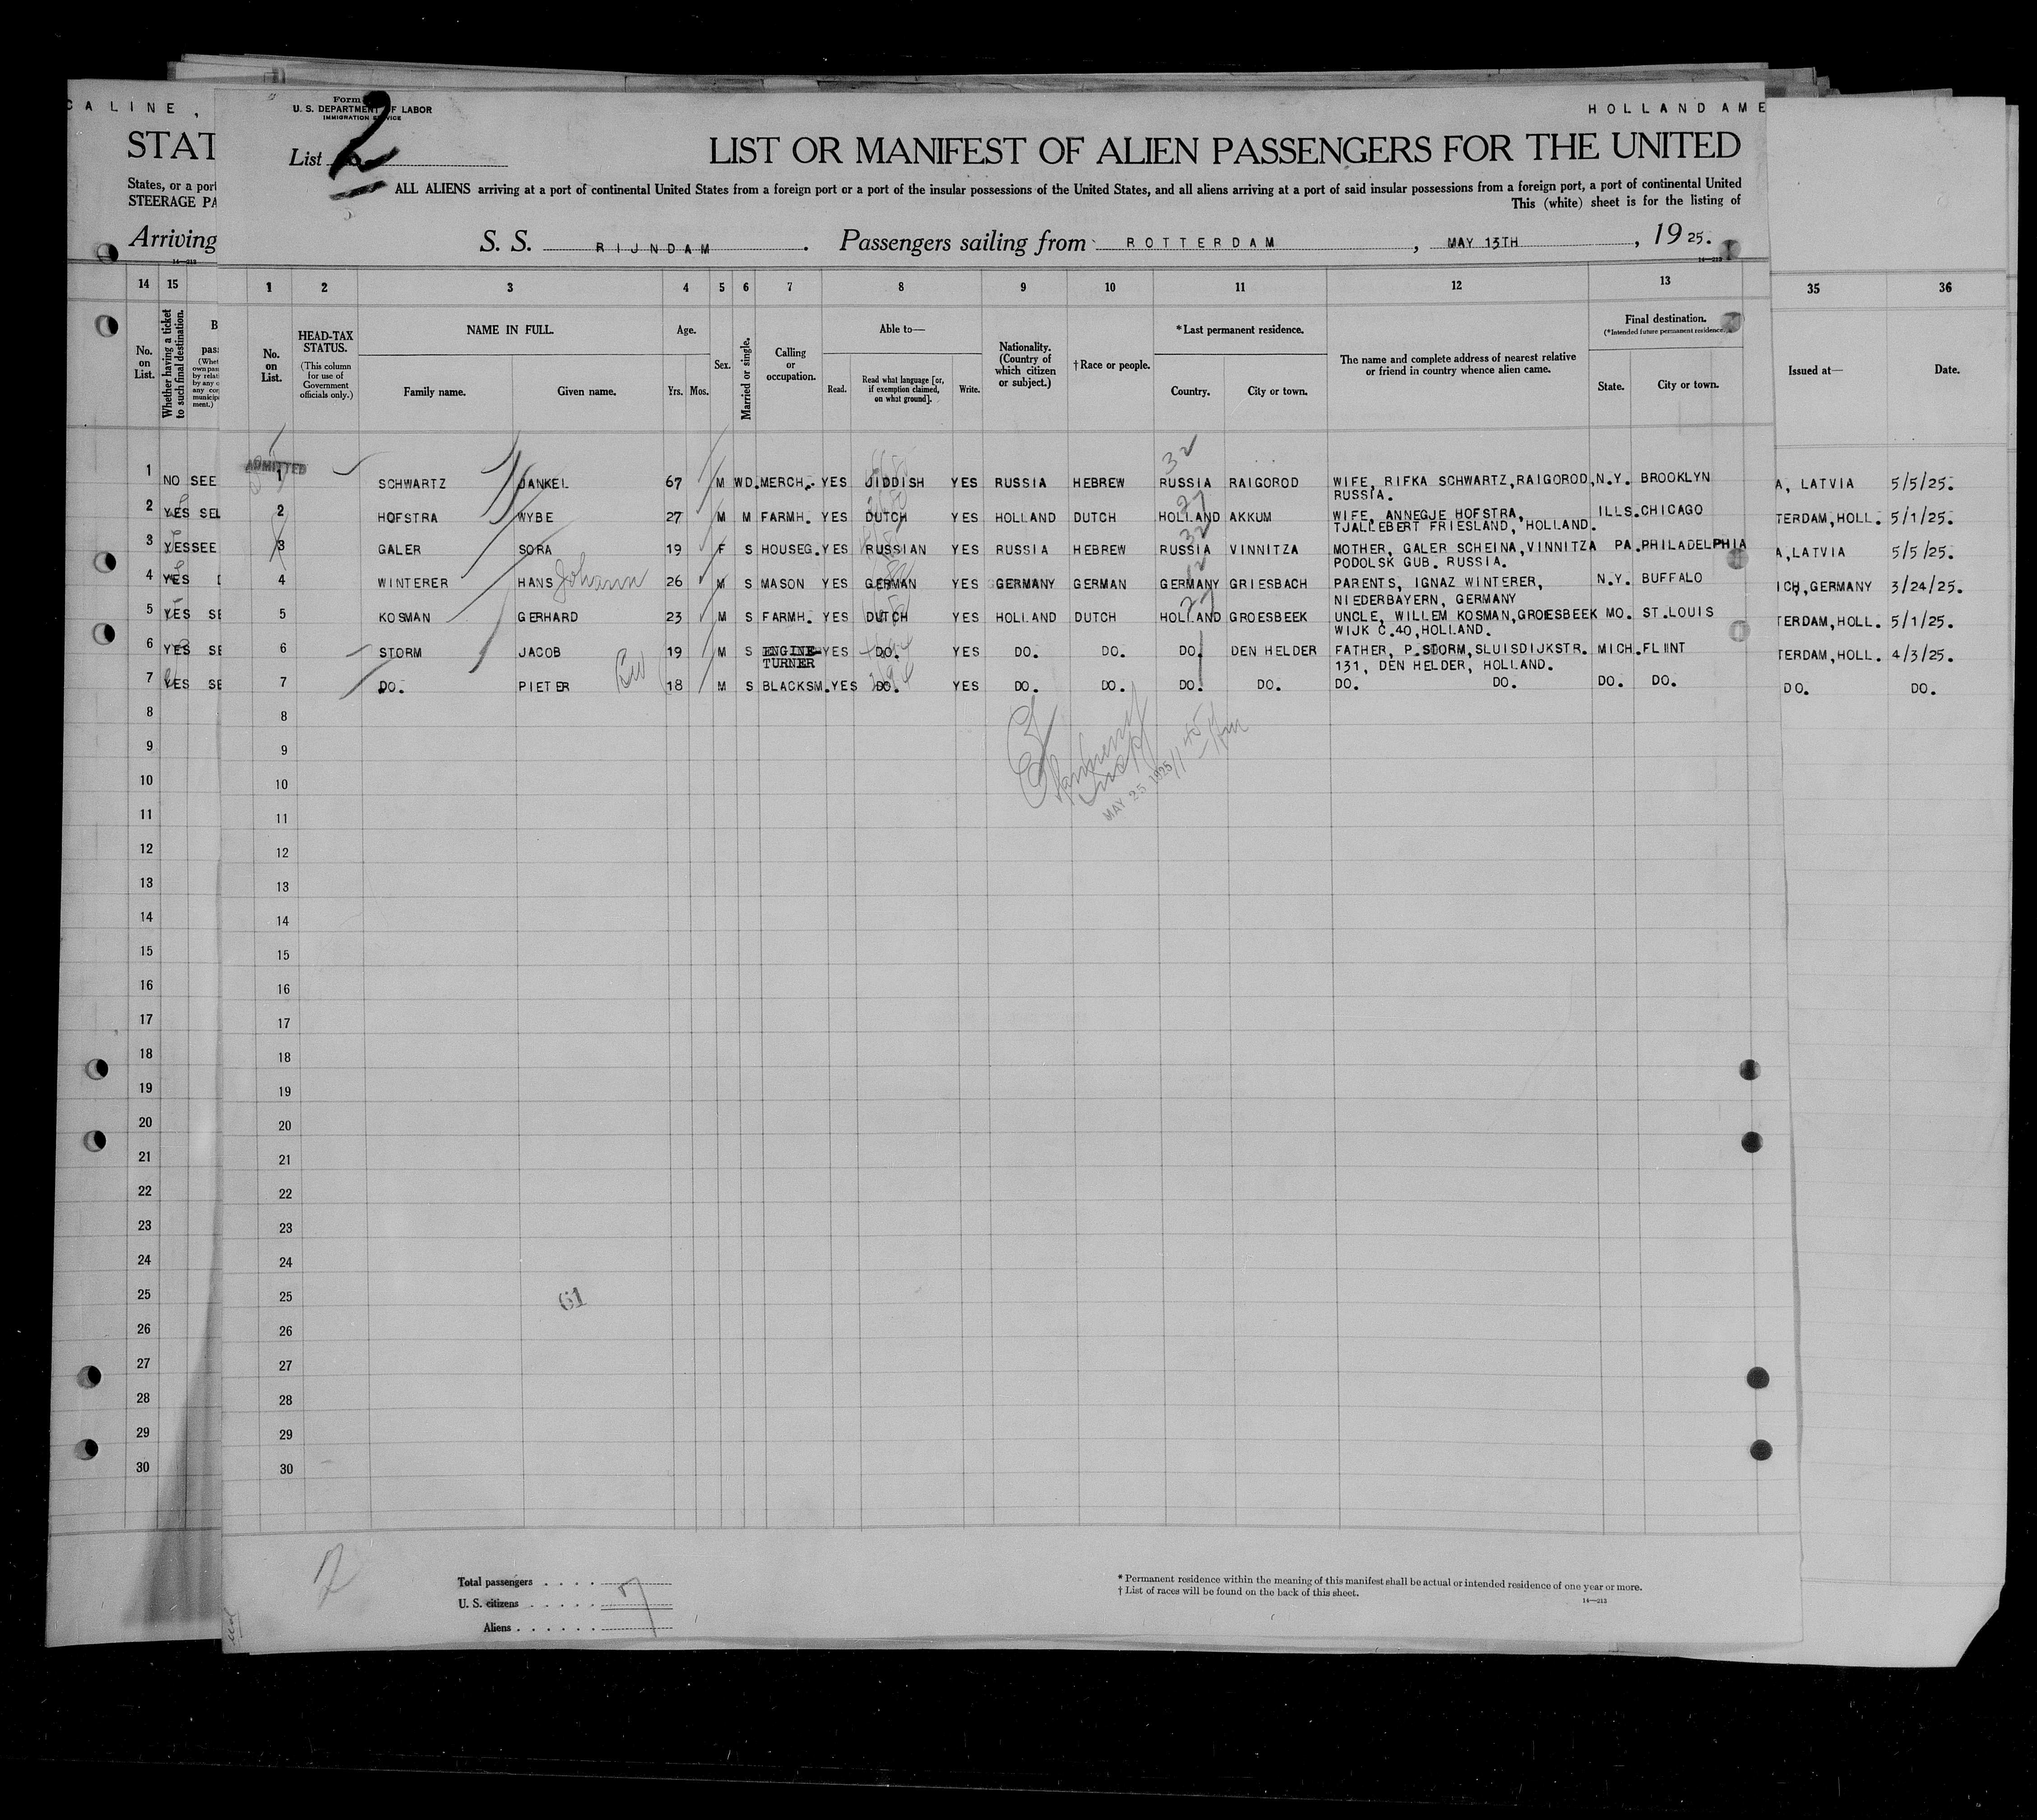 CALINE,
STAT
States, or a port
STEERAGE PA
Arriving
14—213
Form
U. S. DEPARTMENT OF LABOR
IMMIGRATION SERVICE
List 2
HOLLAND AME
LIST OR MANIFEST OF ALIEN PASSENGERS FOR THE UNITED
ALL ALIENS arriving at a port of continental United States from a foreign port or a port of the insular possessions of the United States, and all aliens arriving at a port of said insular possessions from a foreign port, a port of continental United
This (white) sheet is for the listing of
S. S. RIJNDAM. Passengers sailing from ROTTERDAM, MAY 13TH, 1925.
14—213
14 15 1 2 3 4 5 6 7 8 9 10 11 12 13 35 36
No. on List.
Whether having a ticket to such final destination.
No. on List.
HEAD-TAX STATUS.
(This column for use of Government officials only.)
NAME IN FULL.
Family name. Given name.
Age.
Yrs. Mos.
Sex.
Married or single.
Calling or occupation.
Able to—
Read. Read what language [or, if exemption claimed, on what ground]. Write.
Nationality. (Country of which citizen or subject.)
†Race or people.
*Last permanent residence.
Country. City or town.
The name and complete address of nearest relative or friend in country whence alien came.
Final destination.
(*Intended future permanent residence.)
State. City or town.
Issued at—
Date.
ADMITTED
1 NO SEE 1 SCHWARTZ JANKEL 67 M WD. MERCH. YES JIDDISH YES RUSSIA HEBREW RUSSIA RAIGOROD WIFE, RIFKA SCHWARTZ, RAIGOROD, N.Y. BROOKLYN A, LATVIA 5/5/25.
RUSSIA.
2 YES SEL 2 HOFSTRA WYBE 27 M M FARMH. YES DUTCH YES HOLLAND DUTCH HOLLAND AKKUM WIFE, ANNEGJE HOFSTRA, ILLS. CHICAGO TERDAM, HOLL. 5/1/25.
TJALLEBERT FRIESLAND, HOLLAND.
3 YES SEE 3 GALER SORA 19 F S HOUSEG. YES RUSSIAN YES RUSSIA HEBREW RUSSIA VINNITZA MOTHER, GALER SCHEINA, VINNITZA PA. PHILADELPHIA A, LATVIA 5/5/25.
PODOLSK GUB. RUSSIA.
4 YES 4 WINTERER HANS Johann 26 M S MASON YES GERMAN YES GERMANY GERMAN GERMANY GRIESBACH PARENTS, IGNAZ WINTERER, N.Y. BUFFALO ICH, GERMANY 3/24/25.
NIEDERBAYERN, GERMANY
5 YES SE 5 KOSMAN GERHARD 23 M S FARMH. YES DUTCH YES HOLLAND DUTCH HOLLAND GROESBEEK UNCLE, WILLEM KOSMAN, GROESBEEK MO. ST.LOUIS TERDAM, HOLL. 5/1/25.
WIJK C.40, HOLLAND.
6 YES SE 6 STORM JACOB 19 M S ENGINE- YES DO. YES DO. DO. DO. DEN HELDER FATHER, P.STORM, SLUISDIJKSTR. MICH. FLINT TERDAM, HOLL. 4/3/25.
TURNER 131, DEN HELDER, HOLLAND.
7 YES SE 7 DO. PIETER 18 M S BLACKSM. YES DO. YES DO. DO. DO. DO. DO. DO. DO. DO. DO. DO.
8 8
9 9
10 10
MAY 25 1925 11
11 11
12 12
13 13
14 14
15 15
16 16
17 17
18 18
19 19
20 20
21 21
22 22
23 23
24 24
25 25
61
26 26
27 27
28 28
29 29
30 30
2
Total passengers 7
U. S. citizens
Aliens
* Permanent residence within the meaning of this manifest shall be actual or intended residence of one year or more.
† List of races will be found on the back of this sheet.
14—213